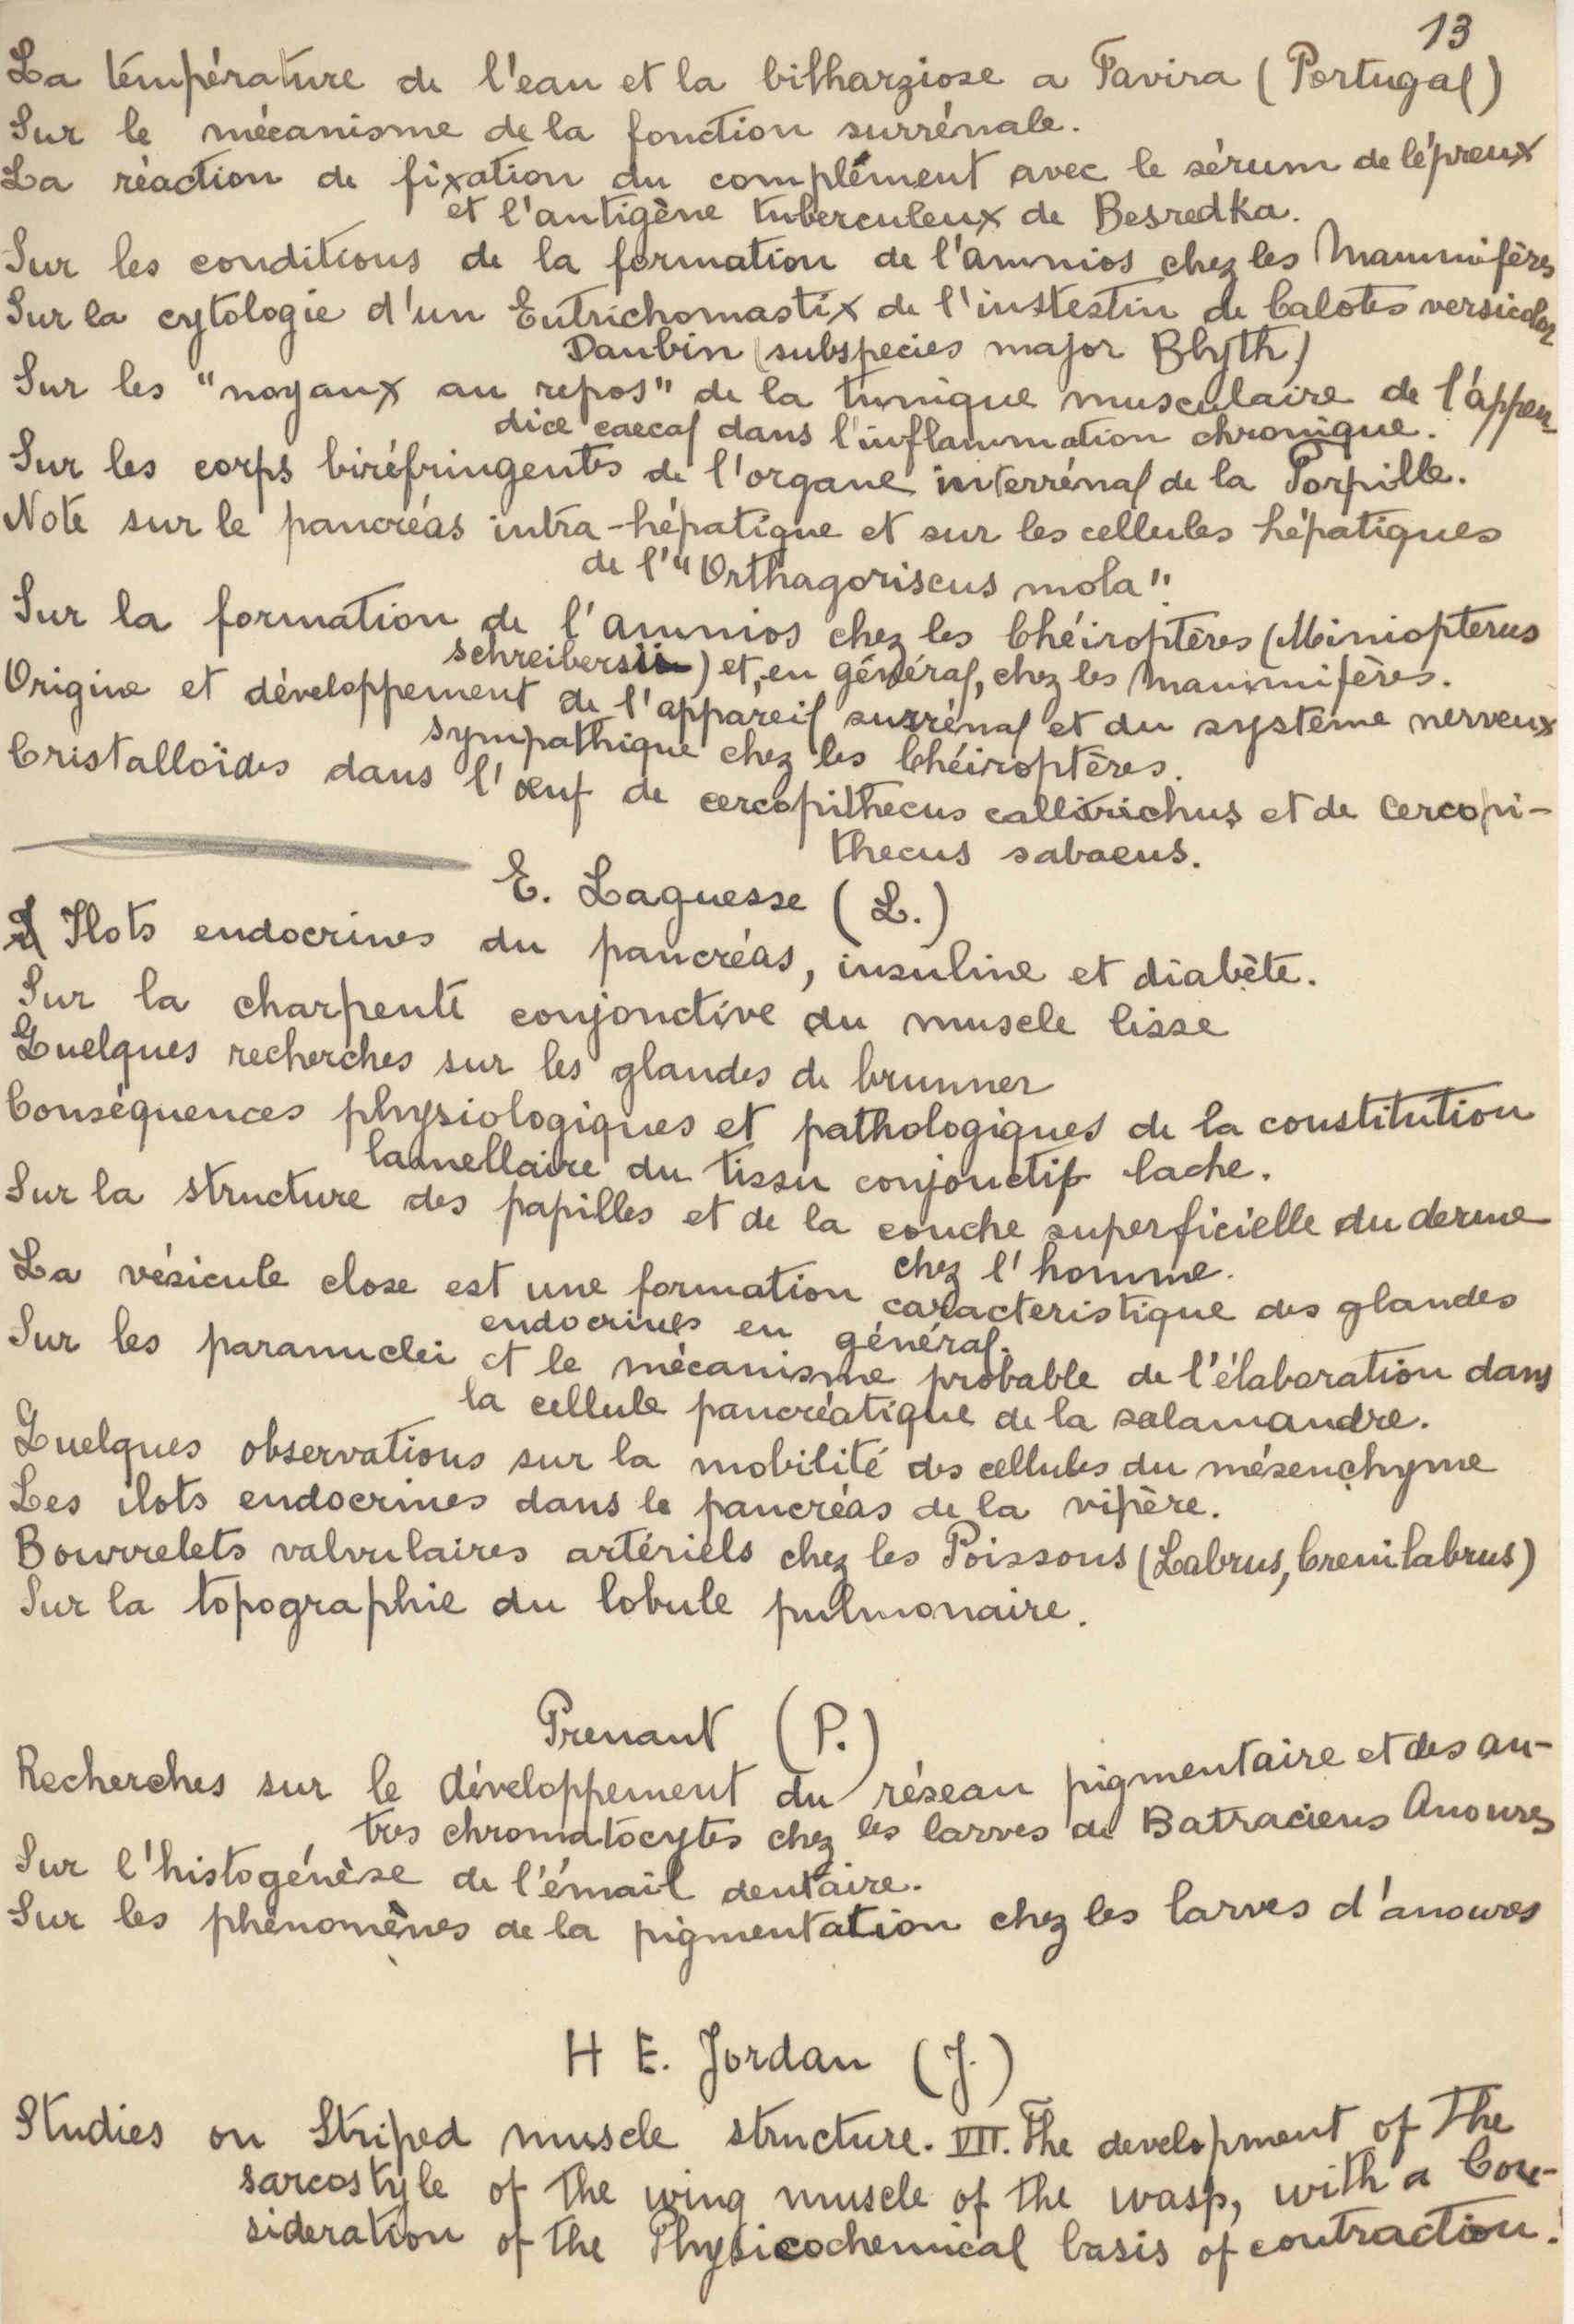 13
La température de l'eau et la bilharziose a Tavira (Portugal)
Sur le mécanisme de la fonction surrénale.
La réaction de fixation du complément avec le sérum de lépreux
et l'antigène tuberculeux de Besredka.
Sur les conditions de la formation de l'amnios chez les Mammifères
Sur la cytologie d'un Eutrichomastix de l'instestin de Calotes versicolor
Daubin (subspecies major Blyth)
Sur les "noyaux au repos" de la tunique musculaire de l'appen-
dice caecal dans l'inflammation chronique.
Sur les corps biréfringents de l'organe interrénal de la Torpille.
Note sur le pancréas intra-hépatique et sur les cellules hépatiques
de l'"Orthagoriscus mola".
Sur la formation de l'amnios chez les Chéiroptères (Miniopterus
schreibersii) et, en général, chez les Mammifères.
Origine et développement de l'appareil surrénal et du système nerveux
sympathique chez les Chéiroptères.
Cristalloïdes dans l'œuf de cercopithecus callitrichus et de Cercopi-
thecus sabaeus.
E. Laguesse (L.)
Ilots endocrines du pancréas, insuline et diabète.
Sur la charpente conjonctive du muscle lisse
Quelques recherches sur les glandes de brunner
Conséquences physiologiques et pathologiques de la constitution
lamellaire du tissu conjonctif lache.
Sur la structure des papilles et de la couche superficielle du derme
chez l'homme.
La vésicule close est une formation caracteristique des glandes
endocrines en général.
Sur les paranuclei et le mécanisme probable de l'élaboration dans
la cellule pancréatique de la salamandre.
Quelques observations sur la mobilité des cellules du mésenchyme
Les ilots endocrines dans le pancréas de la vipère.
Bourrelets valvulaires artériels chez les Poissons (Labrus, Crenilabrus)
Sur la topographie du lobule pulmonaire.
Prenant (P.)
Recherches sur le développement du réseau pigmentaire et des au-
tres chromatocytes chez les larves de Batraciens Anoures
Sur l'histogénèse de l'émail dentaire.
Sur les phénomènes de la pigmentation chez les larves d'anoures
H E. Jordan (J.)
Studies on Striped muscle structure. VII. The development of the
sarcostyle of the wing muscle of the wasp, with a Con-
sideration of the Physicochemical basis of contraction.